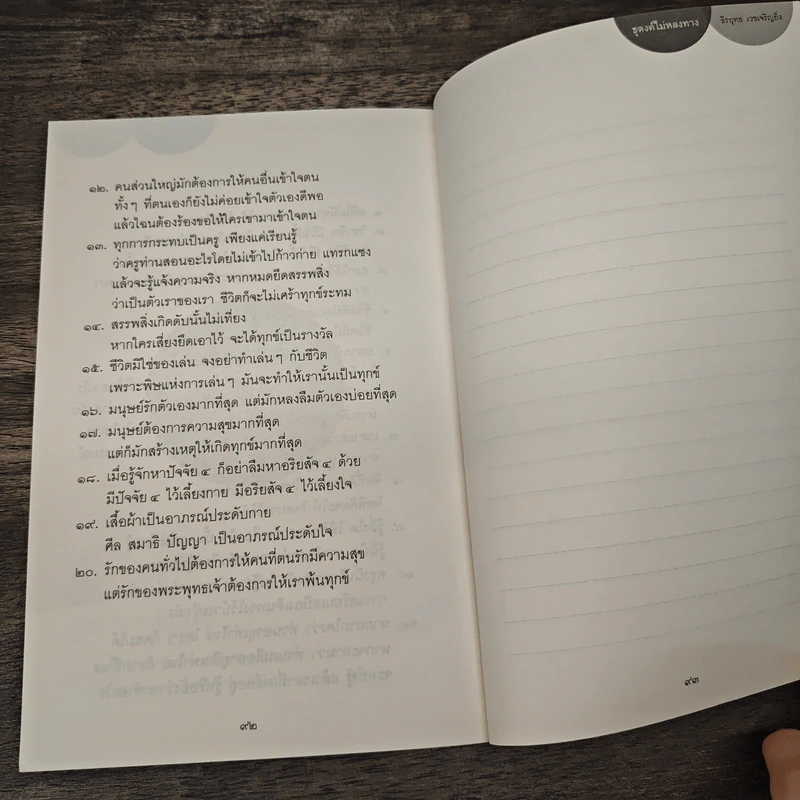 ๑๒. คนส่วนใหญ่มักต้องการให้คนอื่นเข้าใจตน
ทั้งๆ ที่ตนเองก็ยังไม่ค่อยเข้าใจตัวเองดีพอ
แล้วไฉนต้องร้องขอให้ใครเขามาเข้าใจตน
๑๓. ทุกการกระทบเป็นครู เพียงแค่เรียนรู้
ว่าครูท่านสอนอะไรโดยไม่เข้าไปก้าวก่าย แทรกแซง
แล้วจะรู้แจ้งความจริง หากหมดยึดสรรพสิ่ง
ว่าเป็นตัวเราของเรา ชีวิตก็จะไม่เศร้าทุกข์ระทม
๑๔. สรรพสิ่งเกิดดับนั้นไม่เที่ยง
หากใครเสี่ยงยึดเอาไว้ จะได้ทุกข์เป็นรางวัล
๑๕. ชีวิตมิใช่ของเล่น จงอย่าทำเล่นๆ กับชีวิต
เพราะพิษแห่งการเล่นๆ มันจะทำให้เรานั้นเป็นทุกข์
๑๖. มนุษย์รักตัวเองมากที่สุด แต่มักหลงลืมตัวเองบ่อยที่สุด
๑๗. มนุษย์ต้องการความสุขมากที่สุด
แต่ก็มักสร้างเหตุให้เกิดทุกข์มากที่สุด
๑๘. เมื่อรู้จักหาปัจจัย ๔ ก็อย่าลืมหาอริยสัจ ๔ ด้วย
มีปัจจัย ๔ ไว้เลี้ยงกาย มีอริยสัจ ๔ ไว้เลี้ยงใจ
๑๙. เสื้อผ้าเป็นอาภรณ์ประดับกาย
ศีล สมาธิ ปัญญา เป็นอาภรณ์ประดับใจ
๒๐. รักของคนทั่วไปต้องการให้คนที่ตนรักมีความสุข
แต่รักของพระพุทธเจ้าต้องการให้เราพ้นทุกข์
๙๒
ธุดงค์ไม่หลงทาง
ธีรยุทธ เวชเจริญยิ่ง
๙๓